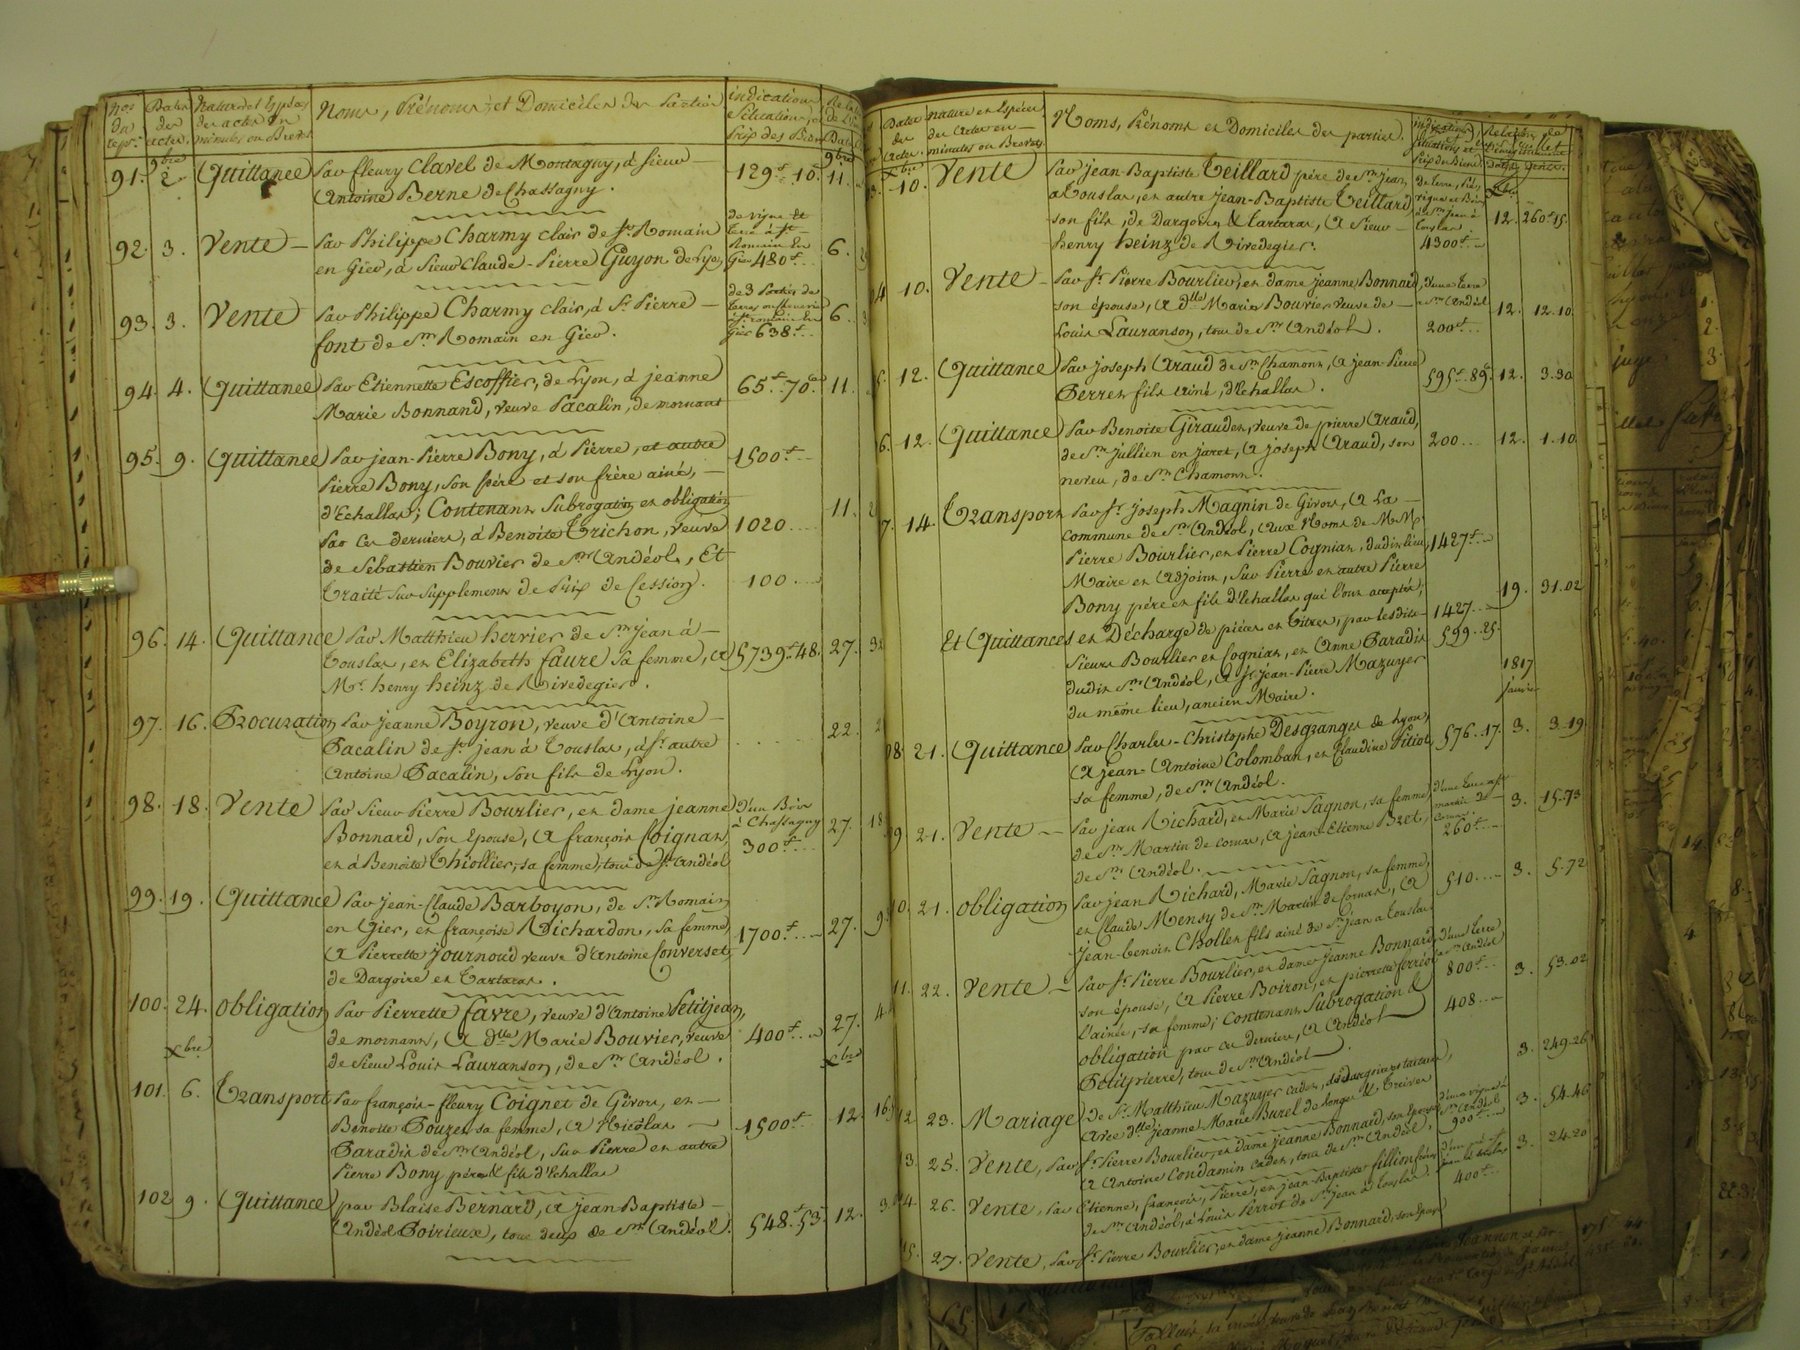 Nos du repre. Dates des actes. Nature et Espèces des actes en minutes ou Brevets Noms, Prénoms et Domiciles des Parties indications Situations, et Prix des Biens
9bre 9bre
91. 2. Quittance Par fleury Clavel de Montagny, à Sieur 129f 10. 11.
Antoine Berne de Chassagny.
92. 3. Vente — Par Philippe Charmy clair de St. Romain de vigne et terre à St. Romain en Gier 480f 6.
en Gier, à Sieur Claude-Pierre Guyon de Lyon
93. 3. Vente Par Philippe Charmy clair, à St. Pierre — de 3 Parties de Gier 638f 6.
font de St. Romain en Gier.
94. 4. Quittance Par Etiennette Escoffier, de Lyon, à jeanne 65f 70c 11.
Marie Bonnand, veuve Pacalin, de mornant
95. 9. Quittance Par jean-Pierre Bony, à Pierre, et autre 1500f
Pierre Bony, son père et son frère ainé, —
d'Echallas; Contenant Subrogation et obligation 11.
Par ces derniers, à Benoite Trichon, veuve 1020
de Sebastien Bouvier de St. Andéol, Et
Traité sur Supplement de Prix de Cession. 100
96. 14. Quittance Par Matthieu hervier de St. Jean à —
Touslas, et Elizabeth faure sa femme, à 5739f 48. 27.
Mr. henry heinz de Rivedegier.
97. 16. Procuration Par jeanne Boyron, veuve d'Antoine — 22.
Pacalin de St. jean à Touslas, à Sr. autre
Antoine Pacalin, son fils de Lyon.
98. 18. Vente Par Sieur Pierre Bourlier, et dame jeanne d'un Bois à Chassagny 27. 18
Bonnard, son Epouse, à françois Coignat, 300f
et à Benoite Thiollier, sa femme, tous de St. Andéol
99. 19. Quittance Par jean-Claude Barboyon, de St. Romain
en Gier, et françoise Richardon, sa femme, 1700f 27.
à Pierrette Journoud veuve d'Antoine Converset,
de Dargoire et Tartaras.
100. 24. obligation Par Pierrette favre, veuve d'Antoine Petitjean,
de mornant, à dlle. Marie Bouvier, veuve 400f 27.
Xbre de Sieur Louis Lauranson, de St. Andéol. Xbre
101. 6. Transport Par françois-fleury Coignet de Givors, et —
Benoite Gouzet sa femme, à Nicolas — 1500f 12. 16
Paradis de St. Andéol, sur Pierre et autre
Pierre Bony père & fils d'Echallas
102 9. Quittance par Blaise Bernard, à jean Baptiste — 548f 53. 12.
Andéol Poirieux, tous deux de St. Andéol.
Dates des Actes. nature et Espèces des Actes en minutes ou Brevets Noms, Prénoms et Domiciles des parties.
Xbre Xbre
10. Vente Par Jean Baptiste Teillard père de St. Jean
à Touslas, et autre jean-Baptiste Teillard
son fils, de Dargoire & tartaras, à Sieur — 12. 260f 15.
henry heinz de Rivedegier. 4300f
10. Vente Par Sr. Pierre Bourlier, et dame jeanne Bonnard, d'une terre
son épouse, à dlle Marie Bouvier veuve de — à St. Andéol 12. 12.10
Louis Lauranson, tous de St. Andéol. 200f
12. Quittance Par joseph Araud de St. Chamont, à jean-Pierre 595f 89c 12. 3.30
Perret fils ainé, d'Echallas.
12. Quittance Par Benoite Giraudet, veuve de pierre Araud, 200 12. 1.10
de St. Jullien en jaret, à joseph Araud, son
neveu, de St. Chamont.
14. Transport Par Sr. joseph Magnin de Givors, à La —
commune de St. Andéol, aux Noms de MM.
Pierre Bourlier, et Pierre Cognias, dudit lieu, 1427f
Maire et Adjoint, sur Pierre et autre Pierre
Bony père et fils d'Echallas qui l'ont accepté, 19. 31.02
Et Quittances et Décharge de pièces et titres, par lesdits 1427
Sieurs Bourlier et Cognias, et Anne Paradis 599.25.
dudit St. Andéol, à Sr. jean-Pierre Mazuyer 1817
du même lieu, ancien Maire. janvier
21. Quittance Par Charles-Christophe Desgranges de Lyon, 576.17. 3. 3.19
à jean-Antoine Colomban, et Claudine Pitiot
sa femme, de St. Andéol.
21. Vente — Par jean Richard, et Marie Pagnon, sa femme, 3. 15.73
de St. Martin de cornas, à jean-Etienne Bret, 260f
de St. Andéol.
21. obligation Par jean Richard, Marie Pagnon, sa femme, 510 3. 5.72
et Claude Mensy de St. Martin de Cornas, à
jean-benoit Chollet fils ainé de St. jean à Touslas
11. 22. Vente — Par Sr. Pierre Bourlier, et dame jeanne Bonnard d'une terre à St. Andéol
son épouse, à Pierre Boiron, et pierrette ferréol 800f 3. 53.02
l'ainée, sa femme; Contenant Subrogation & 408
obligation par ces derniers, à Andéol
Petitpierre, tous de St. Andéol.
12 23. Mariage de Sr. Matthieu Mazuyer cadet, de Dargoire et tartaras, 3. 249.26
avec dlle jeanne Marie Burel de longes & Treves
25. Vente, Par Sr. Pierre Bourlier, et dame jeanne Bonnard, son épouse d'une vigne à St. Andéol 3. 54.46
à Antoine Condamin cadet, tous de St. Andéol. 900f
26. Vente, Par Etienne, françois, Pierre, et jean-Baptiste fillion frères 3. 24.20
de St. Andéol, à Louis Perrot de St. jean à Touslas 400f
27. Vente, Par Sr. Pierre Bourlier, et dame jeanne Bonnard, son épouse